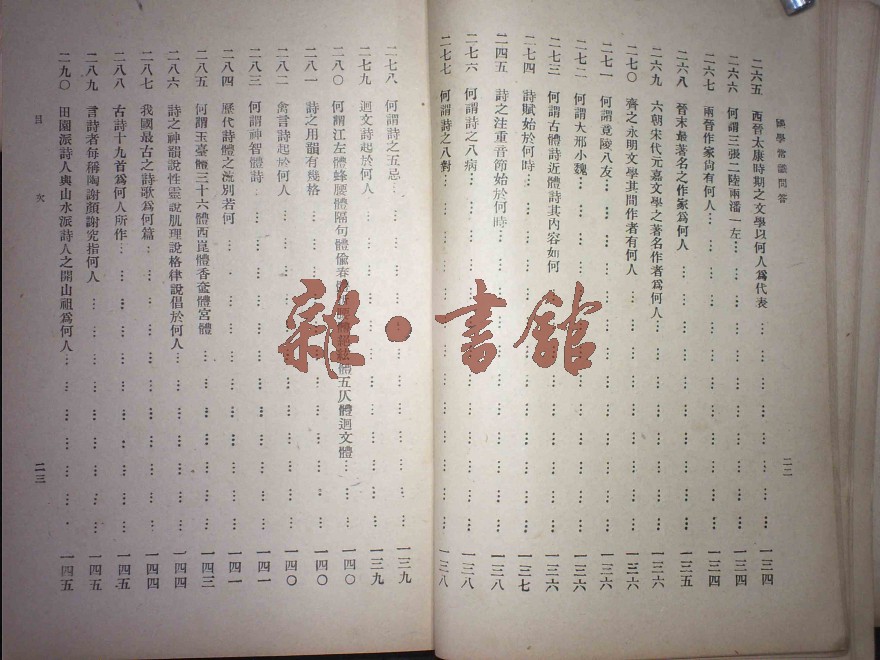 國學常識問答
二二
二六五 西晉太康時期之文學以何人爲代表 一三四
二六六 何謂三張二陸兩潘一左 一三四
二六七 兩晉作家尙有何人 一三四
二六八 晉末最著名之作家爲何人 一三五
二六九 六朝宋代元嘉文學之著名作者爲何人 一三六
二七〇 齊之永明文學其間作者有何人 一三六
二七一 何謂竟陵八友 一三六
二七二 何謂大邢小魏 一三六
二七三 何謂古體詩近體詩其內容如何 一三六
二七四 詩賦始於何時 一三七
二四五 詩之注重音節始於何時 一三八
二七六 何謂詩之八病 一三八
二七七 何謂詩之八對 一三八
二七八 何謂詩之五忌 一三九
二七九 迴文詩起於何人 一三九
二八〇 何謂江左體蜂腰體隔句體偸春體 體五仄體迴文體 一四〇
二八一 詩之用韻有幾格 一四〇
二八二 禽言詩起於何人 一四〇
二八三 何謂神智體詩 一四一
二八四 歷代詩體之派別若何 一四一
二八五 何謂玉臺體三十六體西崑體香奩體宮體 一四三
二八六 詩之神韻說性靈說肌理說格律說倡於何人 一四四
二八七 我國最古之詩歌爲何篇 一四四
二八八 古詩十九首爲何人所作 一四五
二八九 言詩者每稱陶謝顏謝究指何人 一四五
二九〇 田園派詩人與山水派詩人之開山祖爲何人 一四五
目次
二三
雜·書館